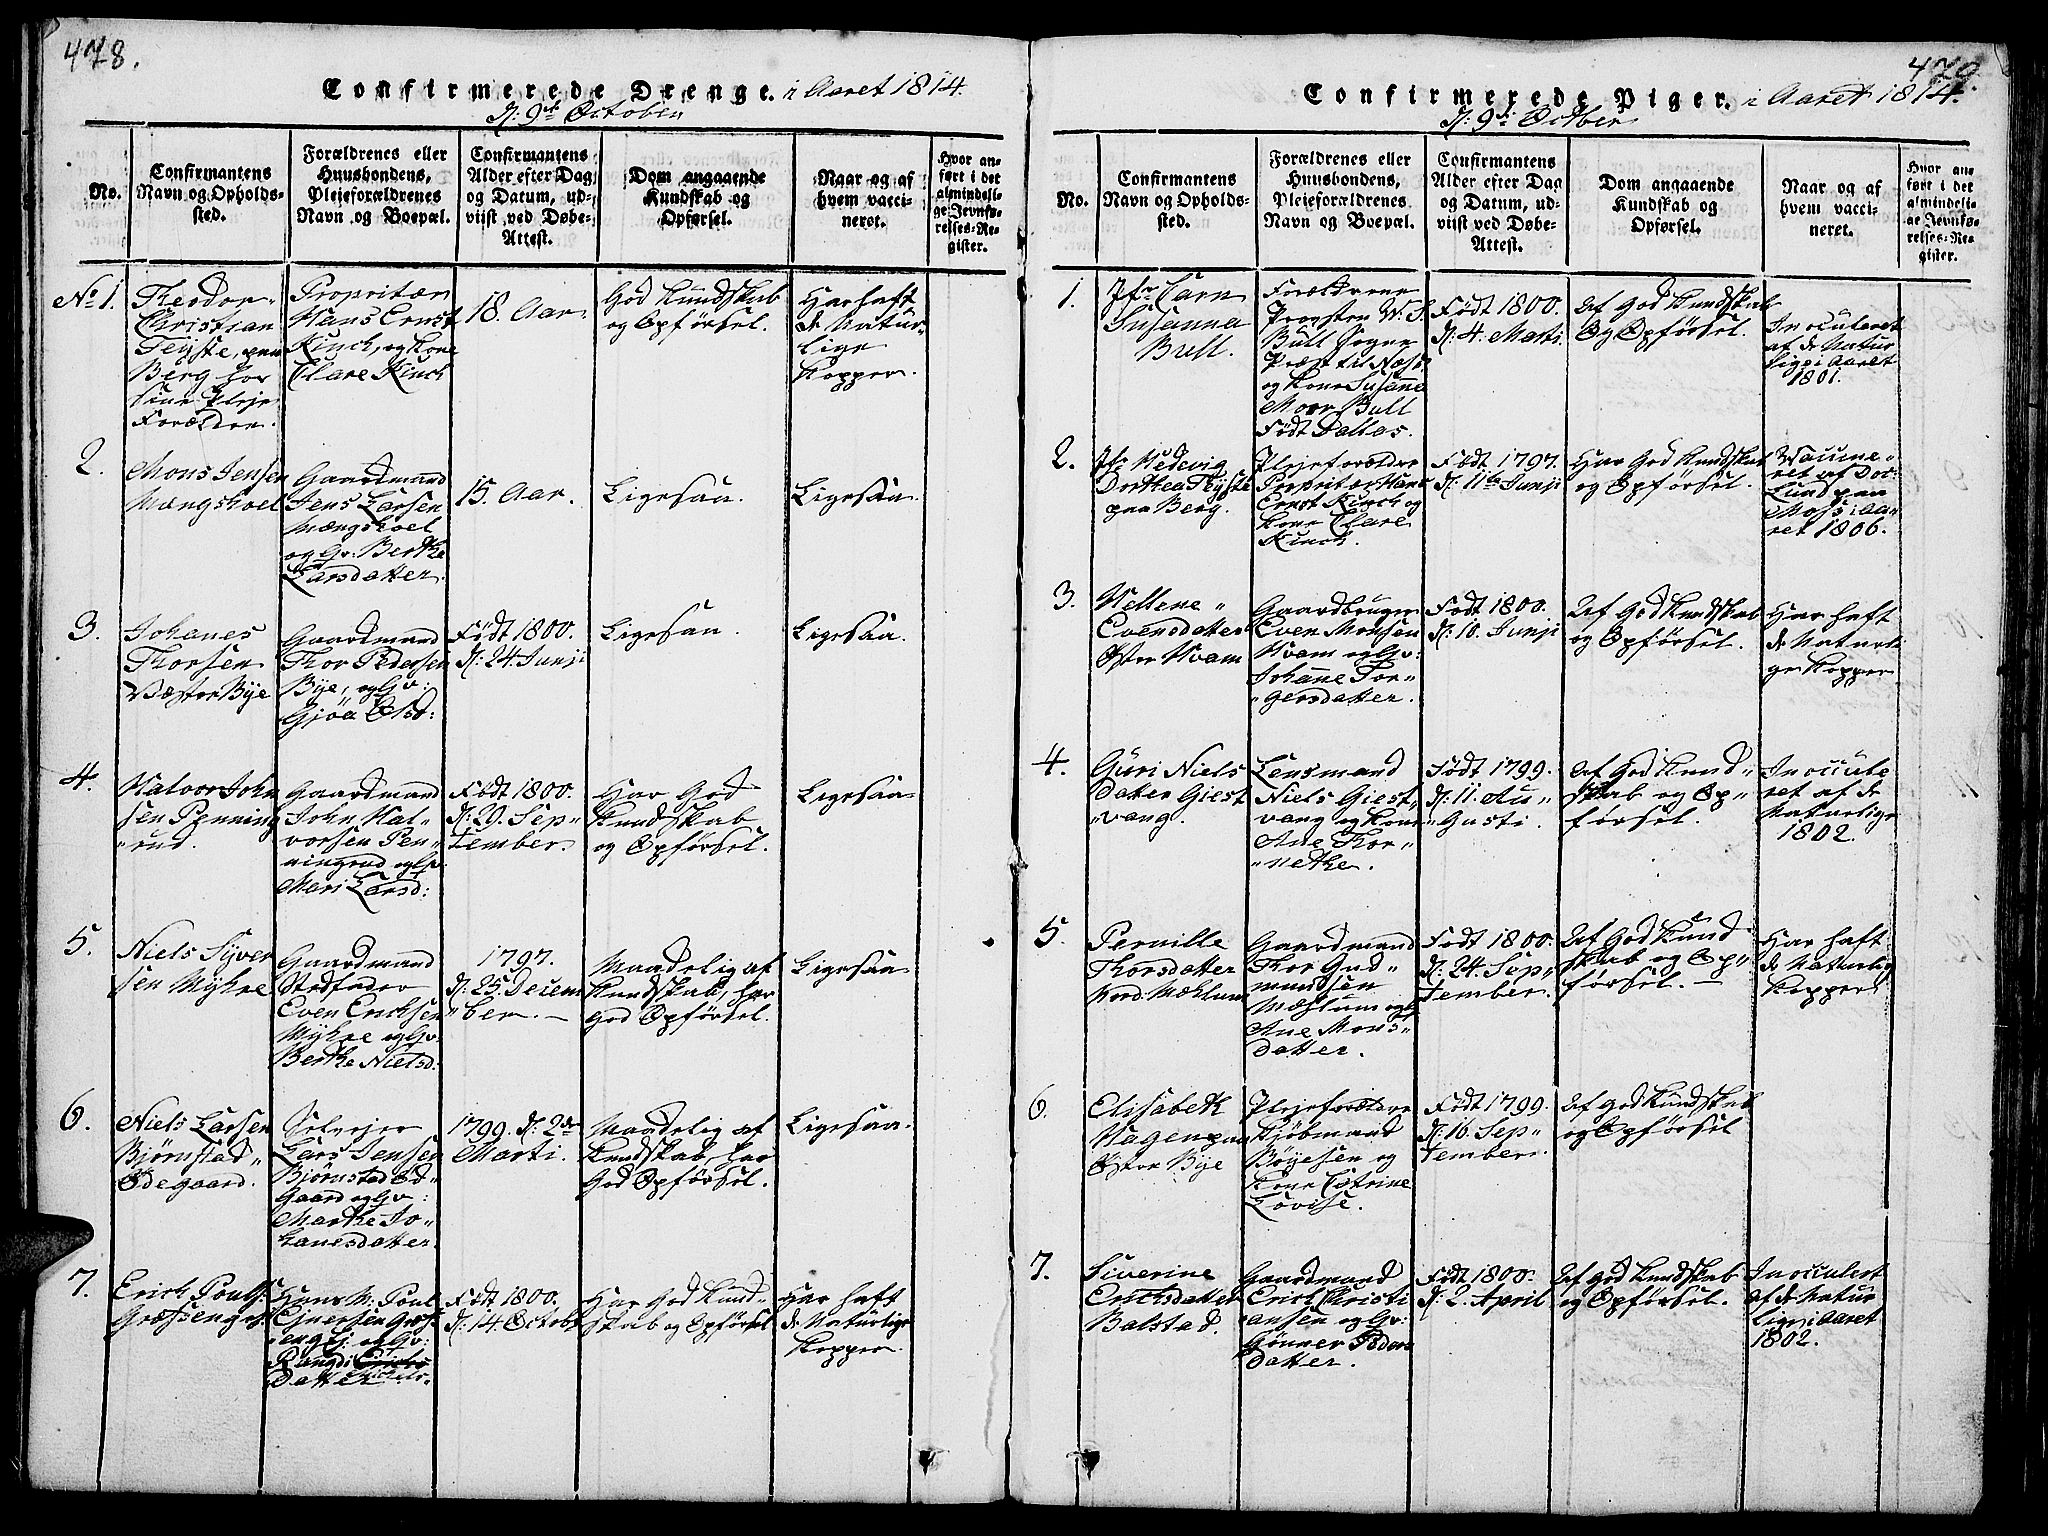 478.
Confirmerede Drenge. i Aaret 1814.
d: 9de October
No.
Confirmantens
Navn og Opholds-
sted.
Forældrenes eller
Huusbondens,
Plejeforældrenes
Navn og Boepæl.
Confirmantens
Alder efter Dag
og Datum, ud-
viist ved Døbe-
Attest.
Dom angaaende
Kundskab og
Opførsel.
Naar og af
hvem vacci-
neret.
Hvor an-
ført i det
almindeli-
ge Jevnfø-
relses-Re-
gister.
No 1.
Theodor
Christian
Teyste, paa
Berg hos
sine Pleje
Forældre.
Propritær
Hans Ernst
Kinch, og Kone
Clare Kinch
18. Aar.
God Kundskab
og Opførsel.
Har haft
de Natur-
lige
Kopper.
2.
Mons Jensen
Mængskoel
Gaardmand
Jens Larsen
Mængskoel
og Gv: Berthe
Larsdatter.
15. Aar.
Ligesaa.
Ligesaa.
3.
Johanes
Thorsen
Væster Bye
Gaardmand
Thor Pedersen
Bye, og Gv:
Gjöa Olsd:
Født 1800.
d: 24. Junji
Ligesaa.
Ligesaa.
4.
Halvor John
sen Penning
"rud.
Gaardmand
John Hal"
vorsen Pen"
ningrud og Gv
Mari Larsd:
Født 1800.
d: 29. Sep"
tember.
Har God
Kundskab
og Opførsel.
Ligesaa
5.
Niels Syver
sen Myhre
Gaardmand
Stedfader
Even Erichsen
Myhre og Gv.
Berthe Nielsd.
1797.
d: 25. Decem
"ber. —
Maadelig af
Kundskab, har
god Opførsel.
Ligesaa
6.
Niels Larsen
Bjørnstad"
Ødegaard.
Selvejer
Lars Jensen
Bjørnstad Ød"
Gaard og Gv:
Marthe Jo"
hanesdatter.
1799. d: 2den
Marti.
Maadelig af
Kundskab, har
God Opførsel.
Ligesaa.
7.
Erich Pouls
Græssenge
Hans M: Poul
Ejnersen Græs
engej. og Gv:
Rangdi
Datter
Født 1800.
d: 14. Octobr
Har God Kund"
skab og Opførsel
Har haft
de Naturlige
Kopper.
479.
Confirmerede Piger. i Aaret 1814.
d: 9de Octber
No.
Confirmantens
Navn og Opholds-
sted.
Forældrenes eller
Huusbondens,
Plejeforældrenes
Navn og Boepæl.
Confirmantens
Alder efter Dag
og Datum, ud-
viist ved Døbe-
Attest.
Dom angaaende
Kundskab og
Opførsel.
Naar og af
hvem vacci-
neret.
Hvor an-
ført i det
almindeli-
ge Jevnfø-
relses-Re-
gister.
1.
Jfr Carn
Susanna
Bull.
Forældrene
Provsten W. S.
Bull Sogne
Præst til Næs
og Kone Susane
Moor Bull
Født Dallas.
Født 1800.
d: 4. Marti.
Af God Kundskab
Og Opførsel.
Inoculeret
af de Natur
lige i Aaret
1801.
2.
Jfr Hedevig
Dorthea Teyste
paa Berg.
Plejeforældre
Propritær Hans
Ernst Kinch og
Kone Clare
Kinch.
Født 1797.
d: 11te Junji
Har God Kundskab
og Opførsel.
Vaccine"
ret af Doc:
Lund paa
Moss i Aa
ret 1806.
3.
Hellene "
Evensdatter
Øster Hvam
Gaardbruger
Even Monsen
Hvam og Gv:
Johanne Tor"
"gersdatter.
Født 1800.
d: 10. Junji
Af God Kundskab
og Opførsel.
Har haft
de Naturli
ge Kopper
4.
Guri Niels
datter Giest
"vang.
Lensmand
Niels Giest"
vang og Kone
Ane Thor"
"nethe.
Født 1799.
d: 11. Au"
"Gusti.
Af God Kund"
skab og Op"
førsel.
Inoccule
ret af de
Naturlige
1802.
5.
Pernille
Thorsdatter
Nord. Mæhlum
Gaardmand
Thor Gud"
mundsen
Mæhlum og Gv
Ane Mons"
datter.
Født 1800.
d: 24. Sep"
tember.
Af God Kund
skab og Op"
førsel. —
Har haft
de Naturlig
Kopper
6.
Elisabeth
Hagen paa
Øster Bye
Plejeforældre
Kjøbmand
Bøyesen og
Kone Catrine
Lovise.
Født 1799.
d: 16. Sep"
tember.
Af God Kundskab
og Opførsel
7.
Siverine
Erichsdatter
Balstad.
Gaardmand
Erich Christi
ansen og Gv:
Gönner Peder
datter.
Født 1800.
d: 2. April
Af God Kundskab
og Opførsel.
Inocculeret
af de Natur
lige i Aaret
1802.